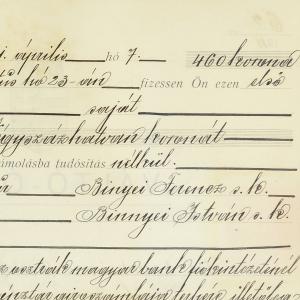 április hó 7. 460 korona
hó 23-án fizessen Ön ezen első
saját
négyszázhatvan koronát
számolásba tudósítás nélkül.
Binyei Ferencz s. k.
Binnyei István s. k.
osztrák magyar bank fiókintézeténél